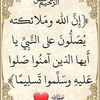 الرحيم
﴿إنَّ الله وملائكته
يُصَلُّونَ على النَّبيِّ يا
أيها الذين آمنوا صلوا
عليهِ وسلِّموا تسليمًا﴾